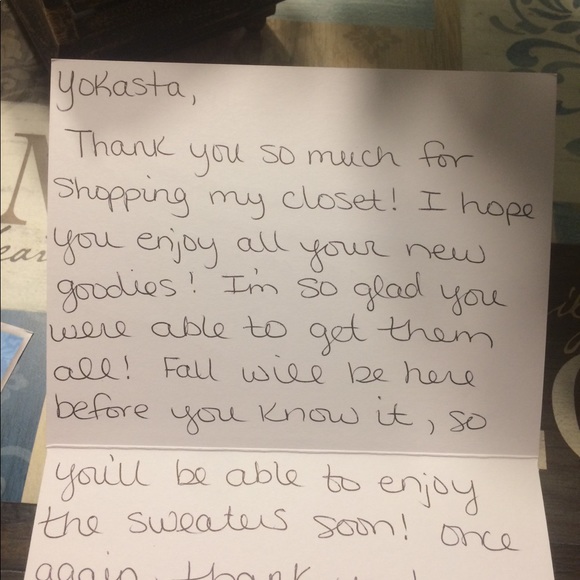 Yokasta,
Thank you so much for
shopping my closet! I hope
you enjoy all your new
goodies! I'm so glad you
were able to get them
all! Fall will be here
before you know it, so
you'll be able to enjoy
the sweaters soon! Once
again, thank